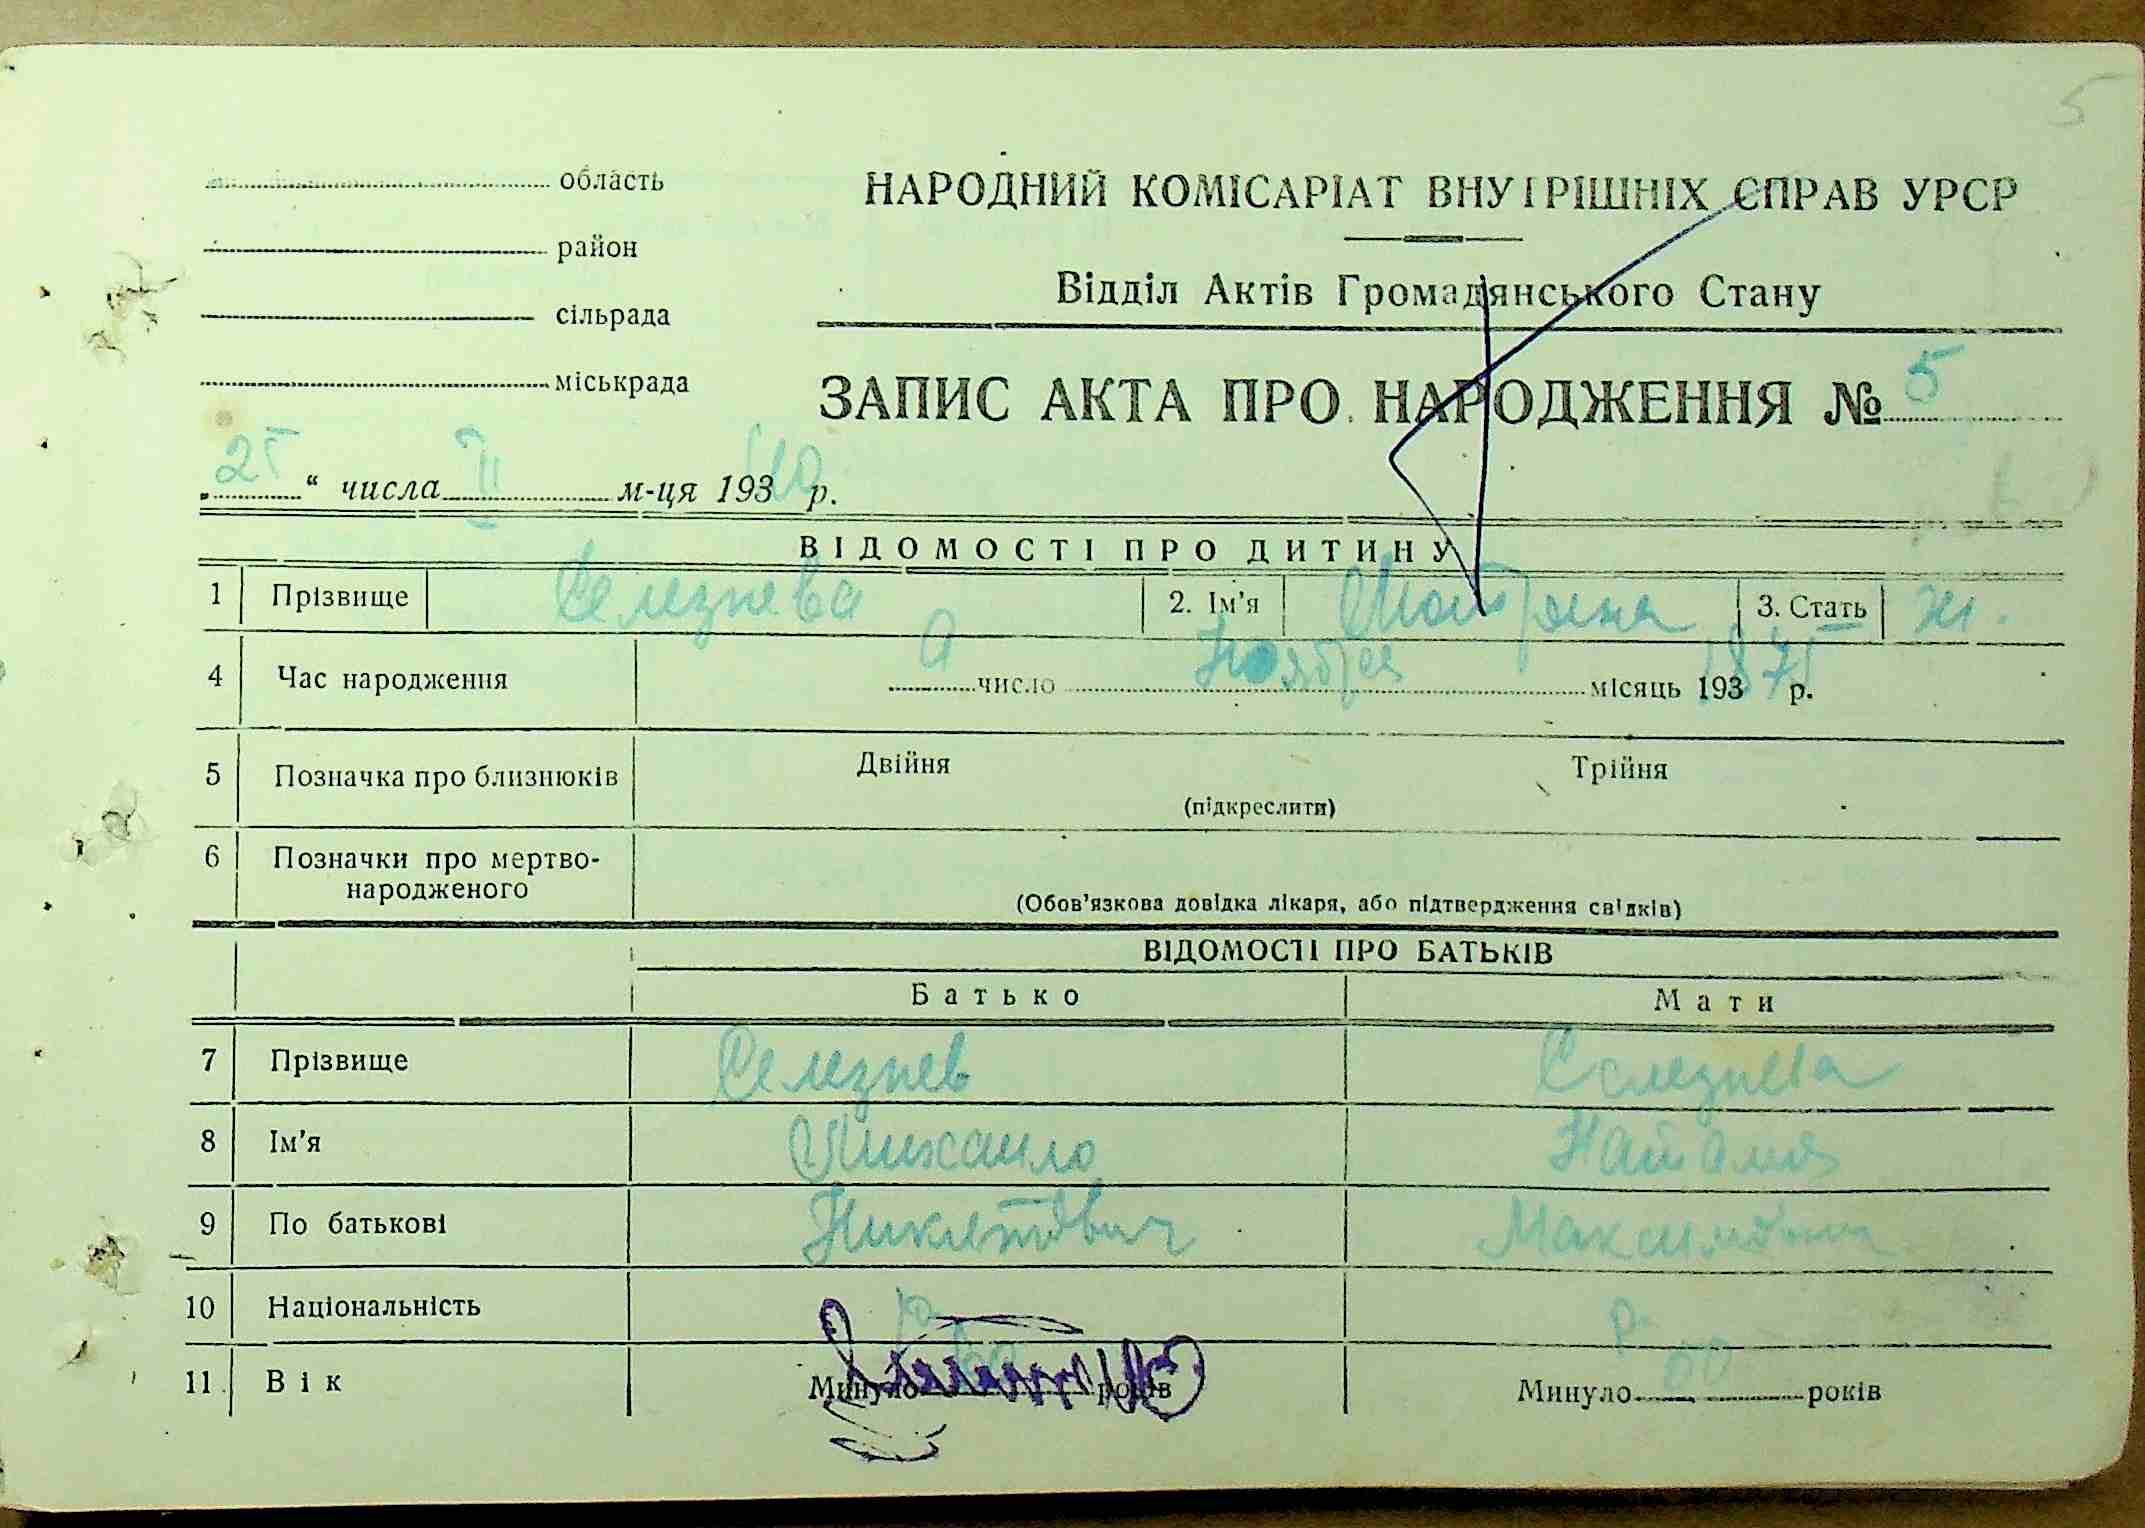 5
область
район
сільрада
міськрада
НАРОДНИЙ КОМІСАРІАТ ВНУТРІШНІХ СПРАВ УРСР
Відділ Актів Громадянського Стану
ЗАПИС АКТА ПРО НАРОДЖЕННЯ № 5
„25“ числа II м-ця 193 40 р.
ВІДОМОСТІ ПРО ДИТИНУ
1 Прізвище Селезнева 2. Ім'я Матрена 3. Стать ж.
4 Час народження 9 число Ноября місяць 193 1875 р.
5 Позначка про близнюків Двійня Трійня
(підкреслити)
6 Позначки про мертво-
народженого
(Обов'язкова довідка лікаря, або підтвердження свідків)
ВІДОМОСТІ ПРО БАТЬКІВ
Батько Мати
7 Прізвище Селезнев Селезнева
8 Ім'я Михаило Наталия
9 По батькові Никитович Максимовна
10 Національність р. р.
11. Вік Минуло 60 років Минуло 60 років